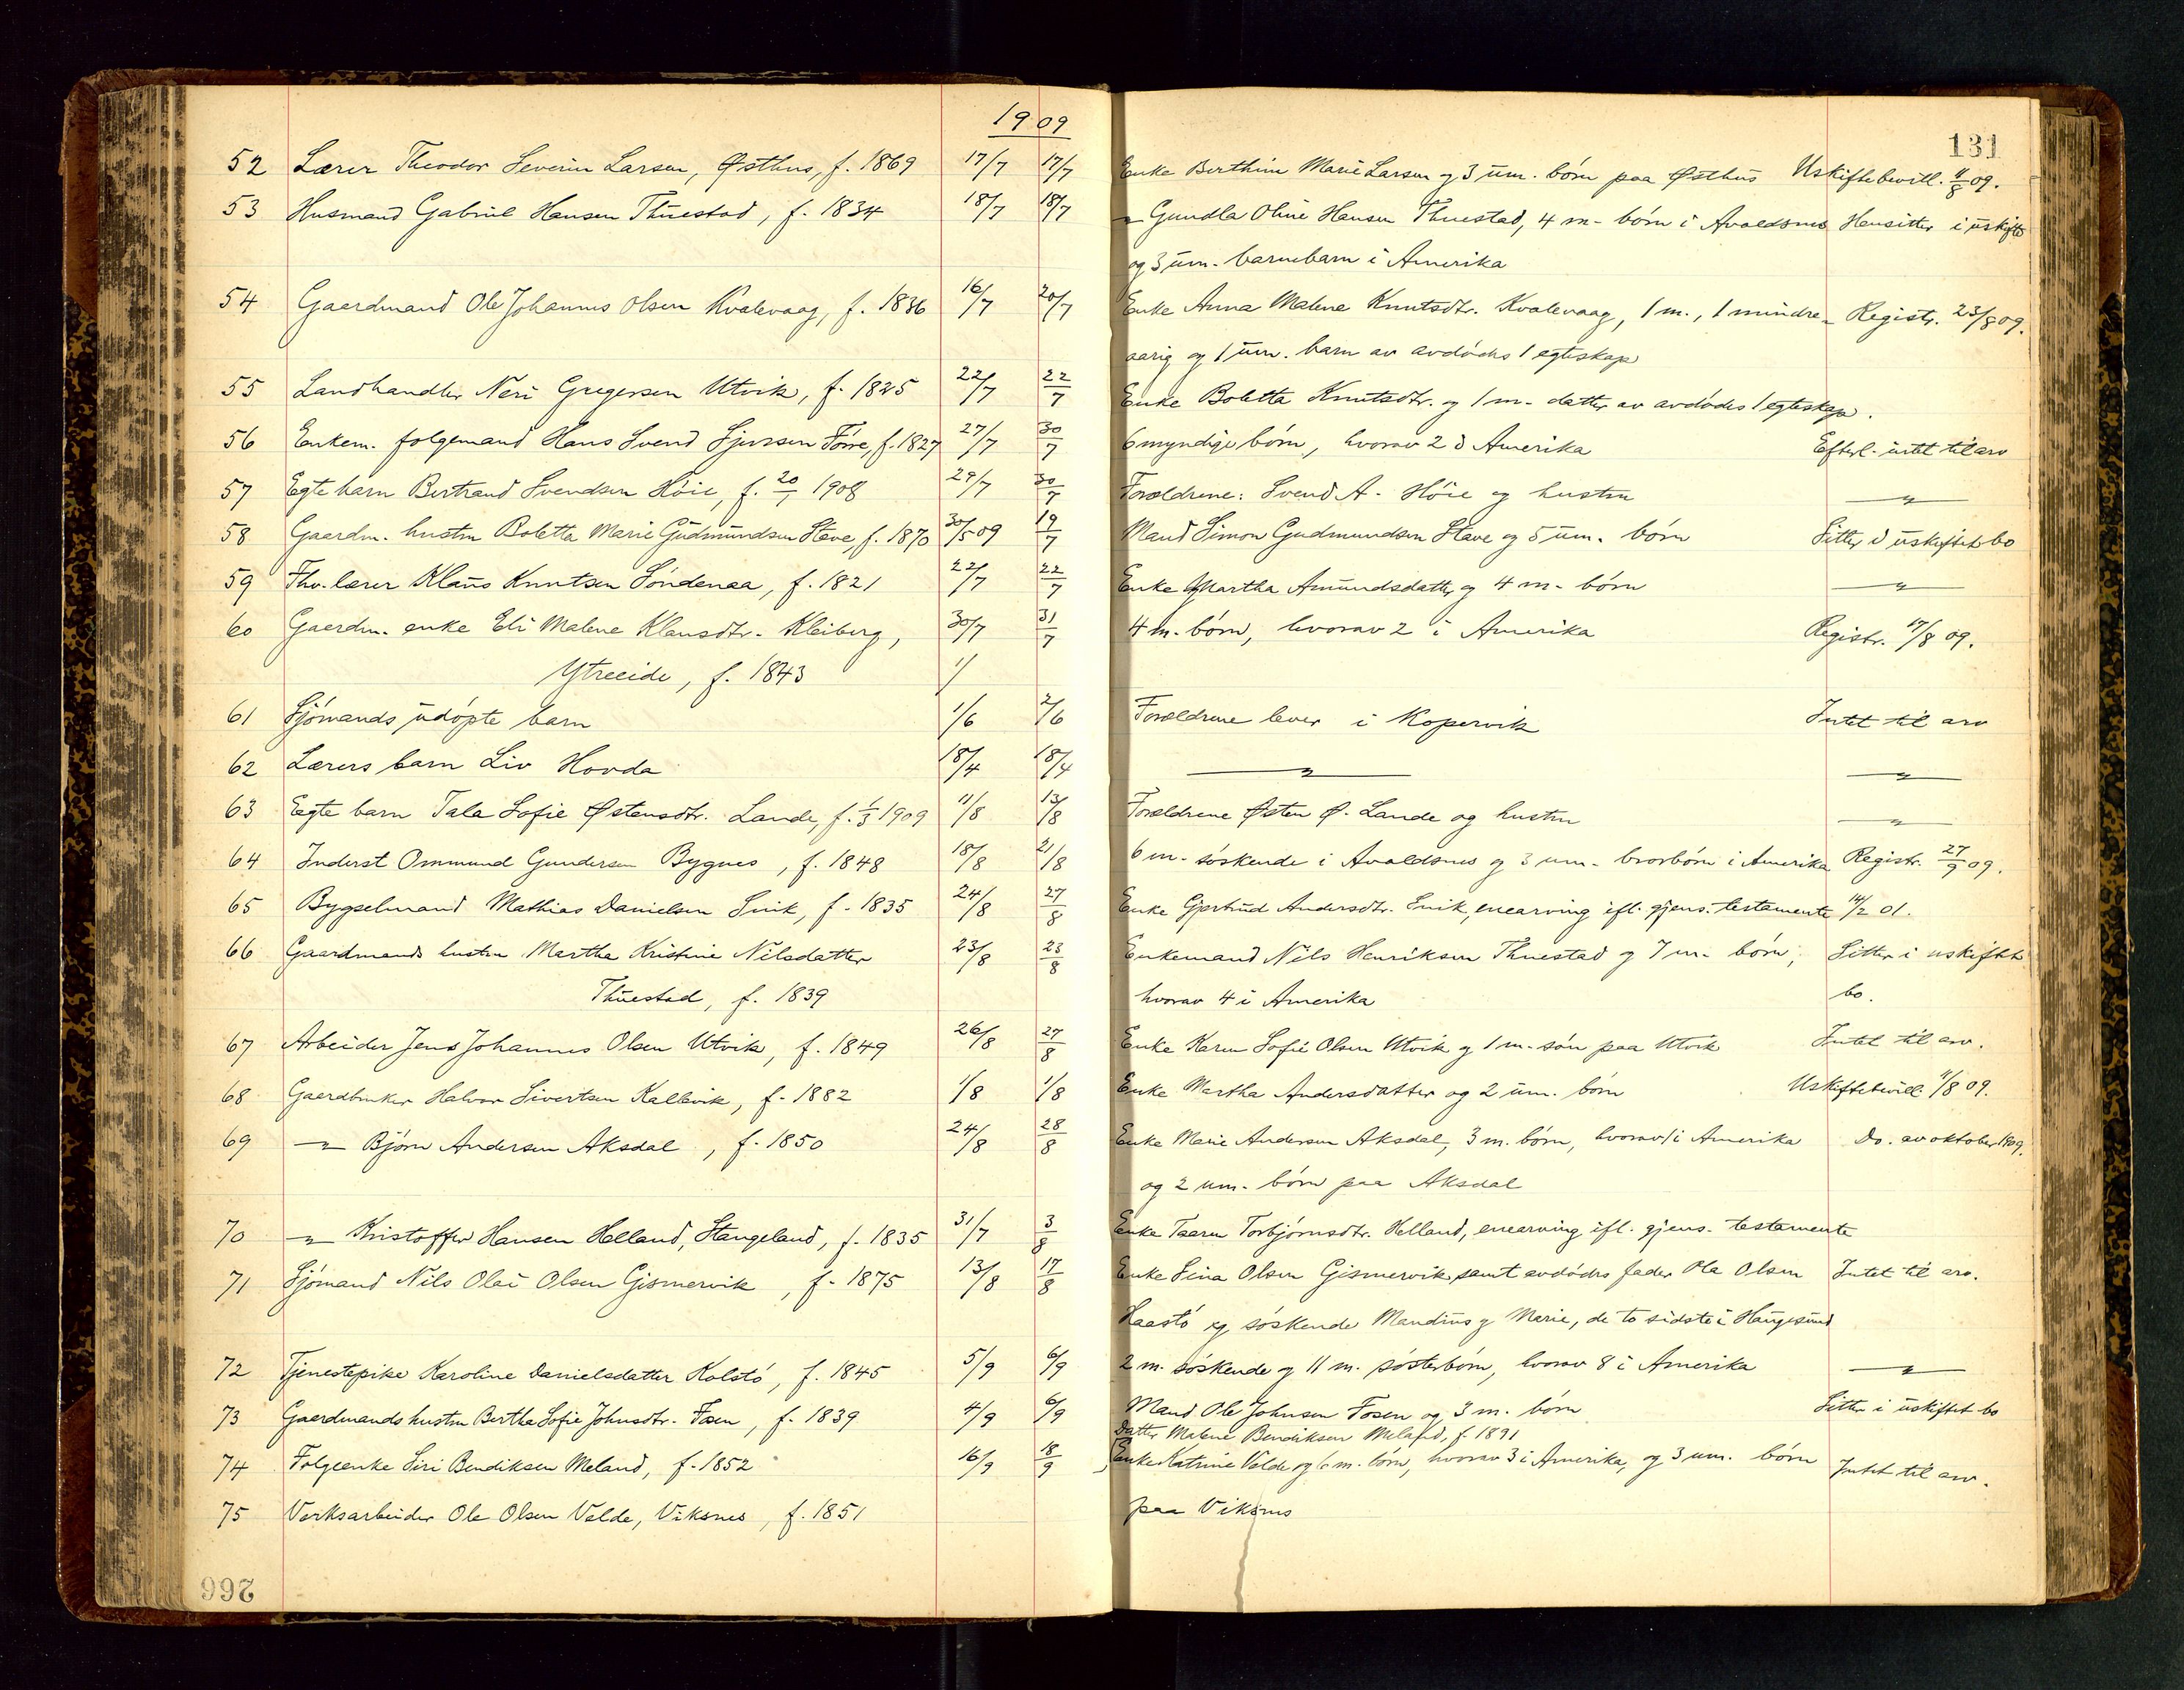 1909
131
52 Lærer Theodor Severin Larsen, Østhus, f. 1869 17/7 17/7 Enke Berthine Marie Larsen og 3 um. børn paa Østhus Uskiftebevill. 11/8 09.
53 Husmand Gabriel Hansen Thuestad, f. 1834 18/7 18/7 " Gundla Oline Hansen Thuestad, 4 m. børn i Avaldsnes Hensitter i uskifte
og 3 um. barnebarn i Amerika
54 Gaardmand Ole Johannes Olsen Kvalevaag, f. 1836 16/7 20/7 Enke Anna Malene Knutsdtr. Kvalevaag, 1 m., 1 mindre- Registr. 23/8 09.
aarig og 1 um. barn av avdødes 1 egteskap
55 Landhandler Neri Gregersen Utvik, f. 1825 22/7 22/7 Enke Boletta Knutsdtr. og 1 m. datter av avdødes 1 egteskap.
56 Enkem. følgemand Hans Svend Sjursen Førre, f. 1827 27/7 30/7 6 myndige børn, hvorav 2 i Amerika Efterl. intet til arv
57 Egte barn Bertrand Svendsen Høie, f. 20/7 1908 29/7 30/7 Forældrene: Svend A. Høie og hustru "
58 Gaardm. hustru Boletta Marie Gudmundsen Stave, f. 1870 30/5 09 19/7 Mand Simon Gudmundsen Stave og 5 um. børn Sitter i uskiftet bo
59 Fhv. lærer Klaus Knutsen Søndenaa, f. 1821 22/7 22/7 Enke Martha Amundsdatter og 4 m. børn "
60 Gaardm. enke Eli Malene Klausdtr. Kleiberg, 30/7 31/7 4 m. børn, hvorav 2 i Amerika Registr. 17/8 09.
Ytreeide, f. 1843 1/
61 Sjømands udøpte barn 1/6 2/6 Forældrene lever i Kopervik Intet til arv
62 Lærers barn Liv Hovda 18/4 18/4 " "
63 Egte barn Tala Sofie Østensdtr. Lande, f. 1/3 1909 11/8 13/8 Forældrene Østen Ø. Lande og hustru "
64 Inderst Ommund Gundersen Bygnes, f. 1848 18/8 21/8 6 m. søskende i Avaldsnes og 3 um. brorbørn i Amerika Registr. 27/9 09.
65 Bygselmand Mathias Danielsen Snik, f. 1835 24/8 27/8 Enke Gjertrud Andersdtr. Snik, enearving ifl. gjens. testamente 14/2 01.
66 Gaardmands hustru Martha Kristine Nilsdatter 23/8 23/8 Enkemand Nils Henriksen Thuestad og 7 m. børn, Sitter i uskiftet
Thuestad, f. 1839 hvorav 4 i Amerika bo.
67 Arbeider Jens Johannes Olsen Utvik, f. 1849 26/8 27/8 Enke Karen Sofie Olsen Utvik og 1 m. søn paa Utvik Intet til arv.
68 Gaardbruker Halvor Sivertsen Kallevik, f. 1882 1/8 1/8 Enke Martha Andersdatter og 2 um. børn Uskiftebevill. 11/8 09.
69 " Bjørn Andersen Aksdal, f. 1850 24/8 28/8 Enke Marie Andersen Aksdal, 3 m. børn, hvorav 1 i Amerika Do. av oktober 1909.
og 2 um. børn paa Aksdal
70 " Kristoffer Hansen Helland, Stangeland, f. 1835 31/7 3/8 Enke Taaren Torbjørnsdtr. Helland, enearving ifl. gjens. testamente
71 Sjømand Nils Olai Olsen Gismervik, f. 1875 13/8 17/8 Enke Sina Olsen Gismervik samt avdødes fader Ola Olsen Intet til arv.
Haastø og søskende Mandius og Marie, de to sidste i Haugesund
72 Tjenestepike Karoline Danielsdatter Kolstø, f. 1845 5/9 6/9 2 m. søskende og 11 m. søsterbørn, hvorav 8 i Amerika "
73 Gaardmands hustru Bertha Sofie Johnsdtr. Fosen, f. 1839 4/9 6/9 Mand Ole Johnsen Fosen og 3 m. børn Sitter i uskiftet bo
Datter Malene Bendiksen Meland, f. 1891
74 Følgeenke Siri Bendiksen Meland, f. 1852 16/9 18/9 Enke Katrine Valde og 6 m. børn, hvorav 3 i Amerika, og 3 um. børn Intet til arv.
75 Verksarbeider Ole Olsen Valde, Viksnes, f. 1851 paa Viksnes
266